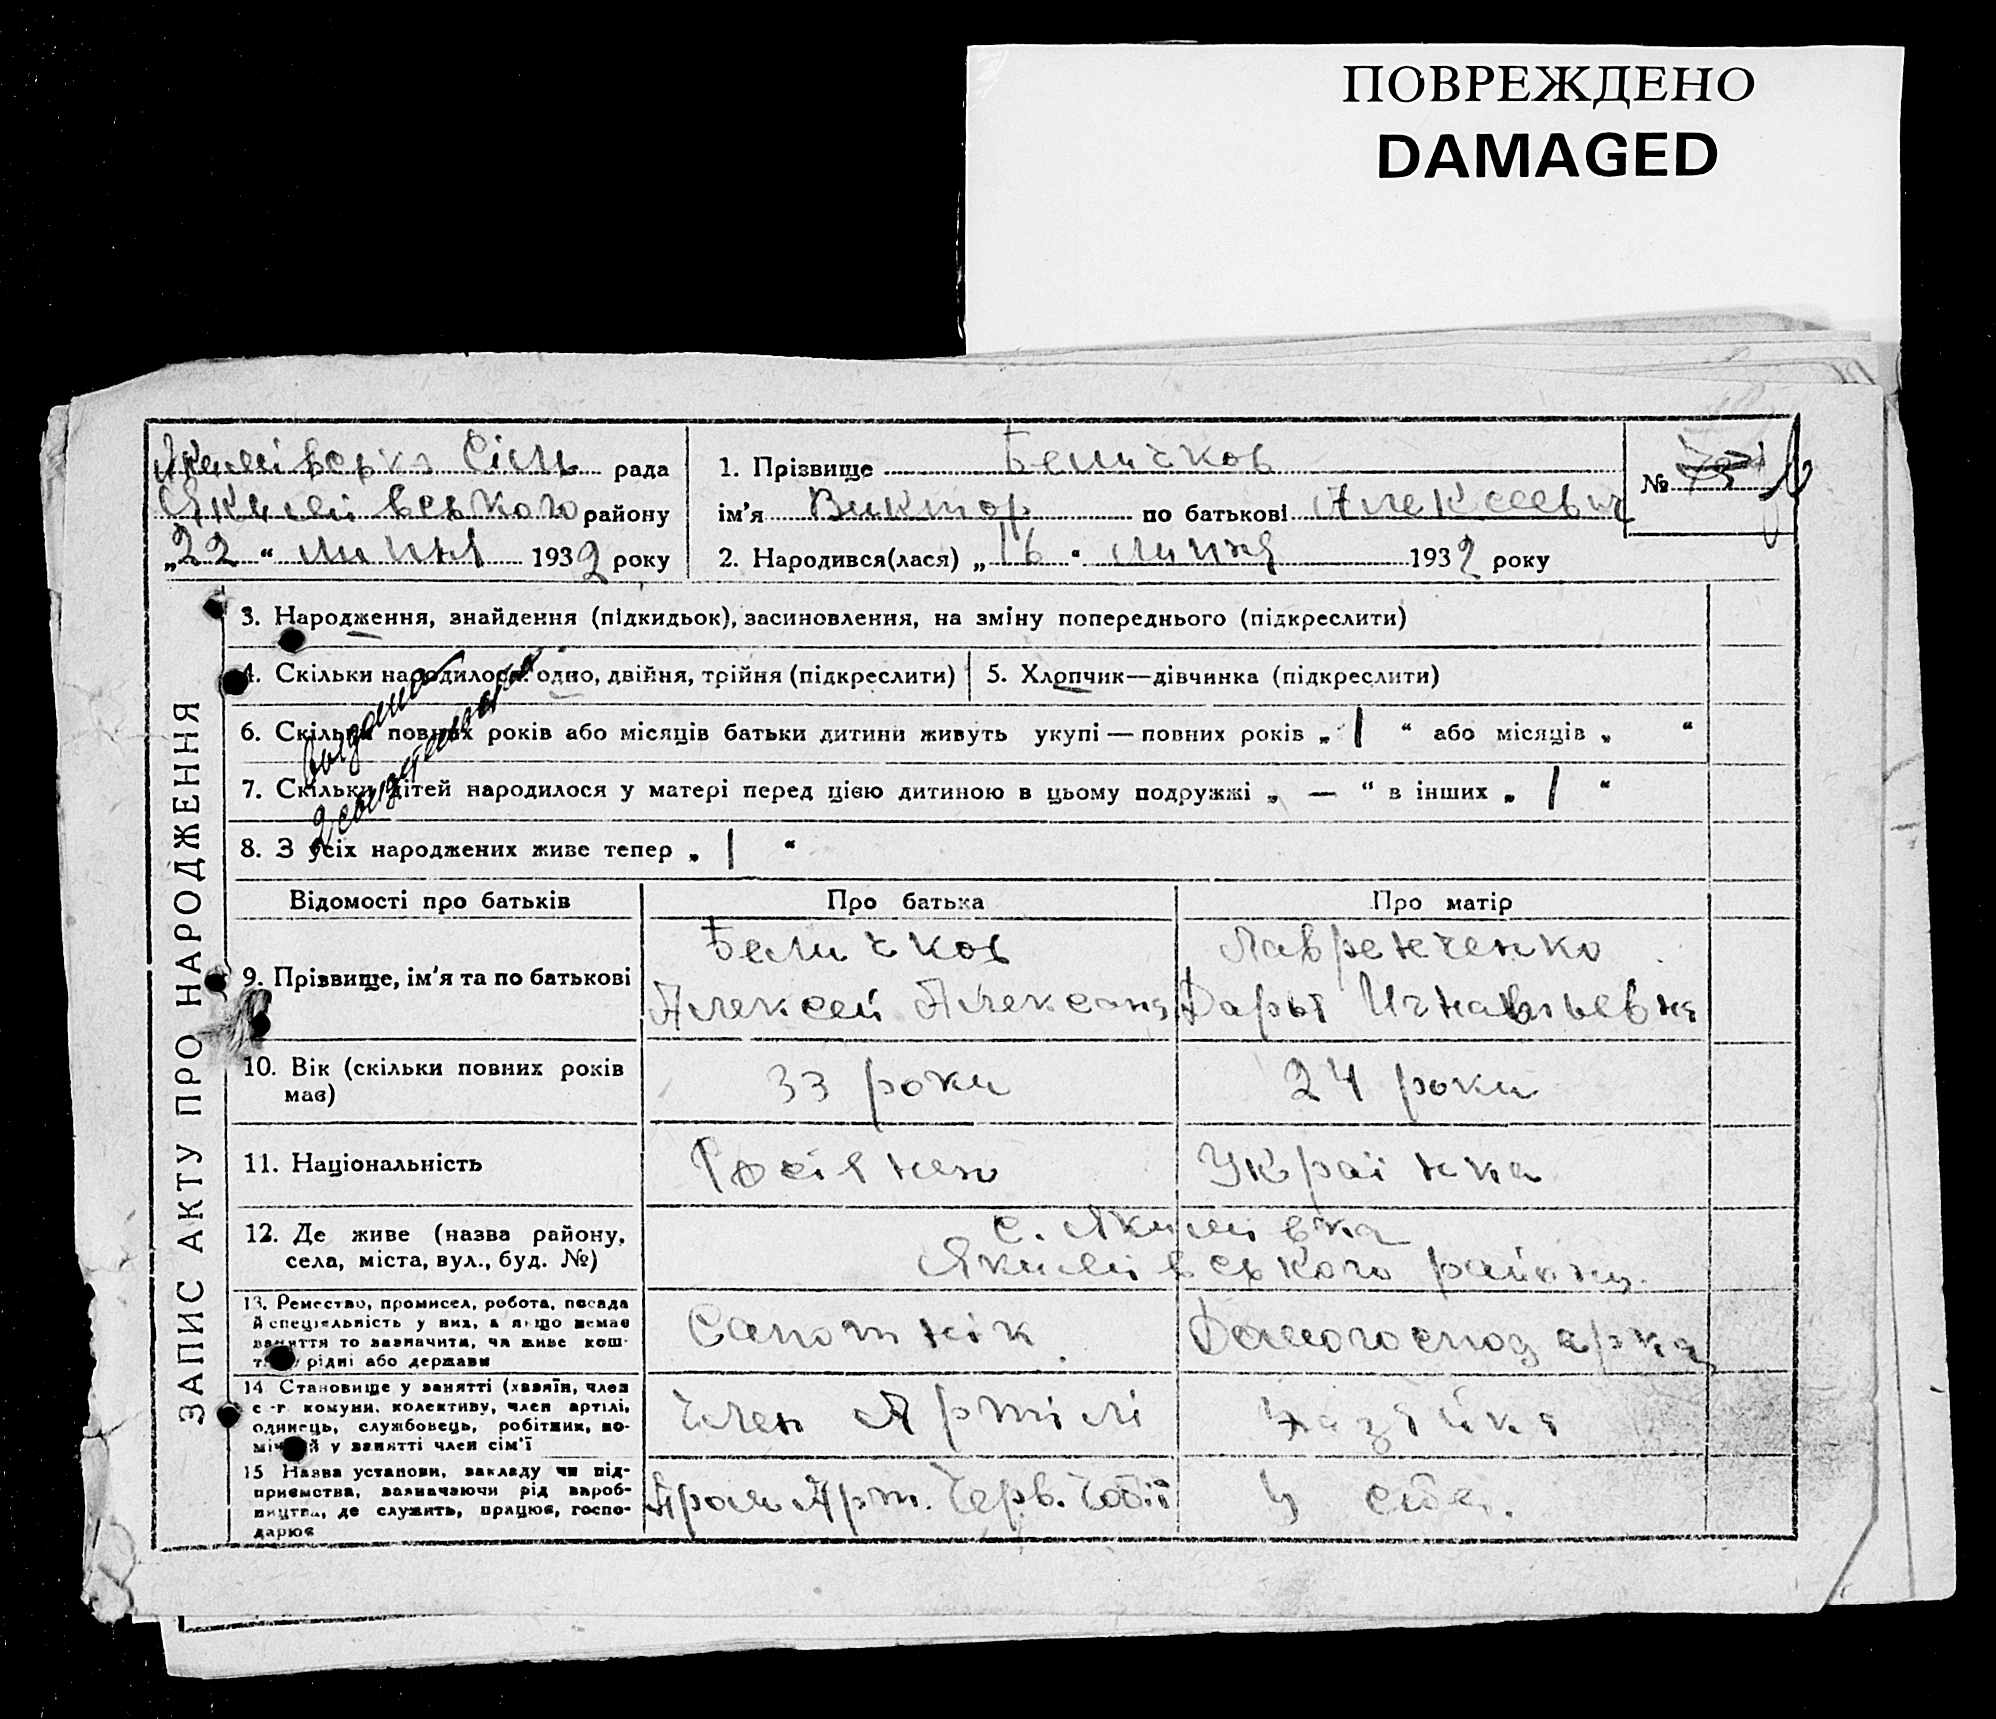 ПОВРЕЖДЕНО
DAMAGED
Якимівська Сіль рада
Якимівського району
„22“ липня 1932 року
1. Прізвище Беличков
ім'я Виктор по батькові Алексеевич
2. Народився(лася) „16“ липня 1932 року
№
ЗАПИС АКТУ ПРО НАРОДЖЕННЯ
3. Народження, знайдення (підкидьок), засиновлення, на зміну попереднього (підкреслити)
4. Скільки народилося: одно, двійня, трійня (підкреслити)
5. Хлопчик—дівчинка (підкреслити)
6. Скільки повних років або місяців батьки дитини живуть укупі — повних років „1“ або місяців „ “
7. Скільки дітей народилося у матері перед цією дитиною в цьому подружжі „—“ в інших „1“
8. З усіх народжених живе тепер „1“
Відомості про батьків Про батька Про матір
9. Прізвище, ім'я та по батькові
Беличков
Алексей Александ
Лавренченко
Дарья Игнатьевна
10. Вік (скільки повних років має)
33 роки
24 роки
11. Національність
Росіянен
Українка
12. Де живе (назва району,
села, міста, вул., буд. №)
с. Якимівка
Якимівського району
13. Ремество, промисел, робота, посада
й спеціяльність у них, а якщо немає
заняття то зазначити, чи живе кош-
рідні або держави
Сапотнік
Домогосподарка
14 Становище у занятті (хазяїн, член
с.-г. комуни, колективу, член артілі,
одинець, службовець, робітник, по-
у занятті член сім'ї
Член Артілі
Хазяйка
15 Назва установи, закладу чи під-
приємства, зазначаючи рід вироб-
ництва, де служить, працює, госпо-
дарює
Арт. Черв.
У себе.